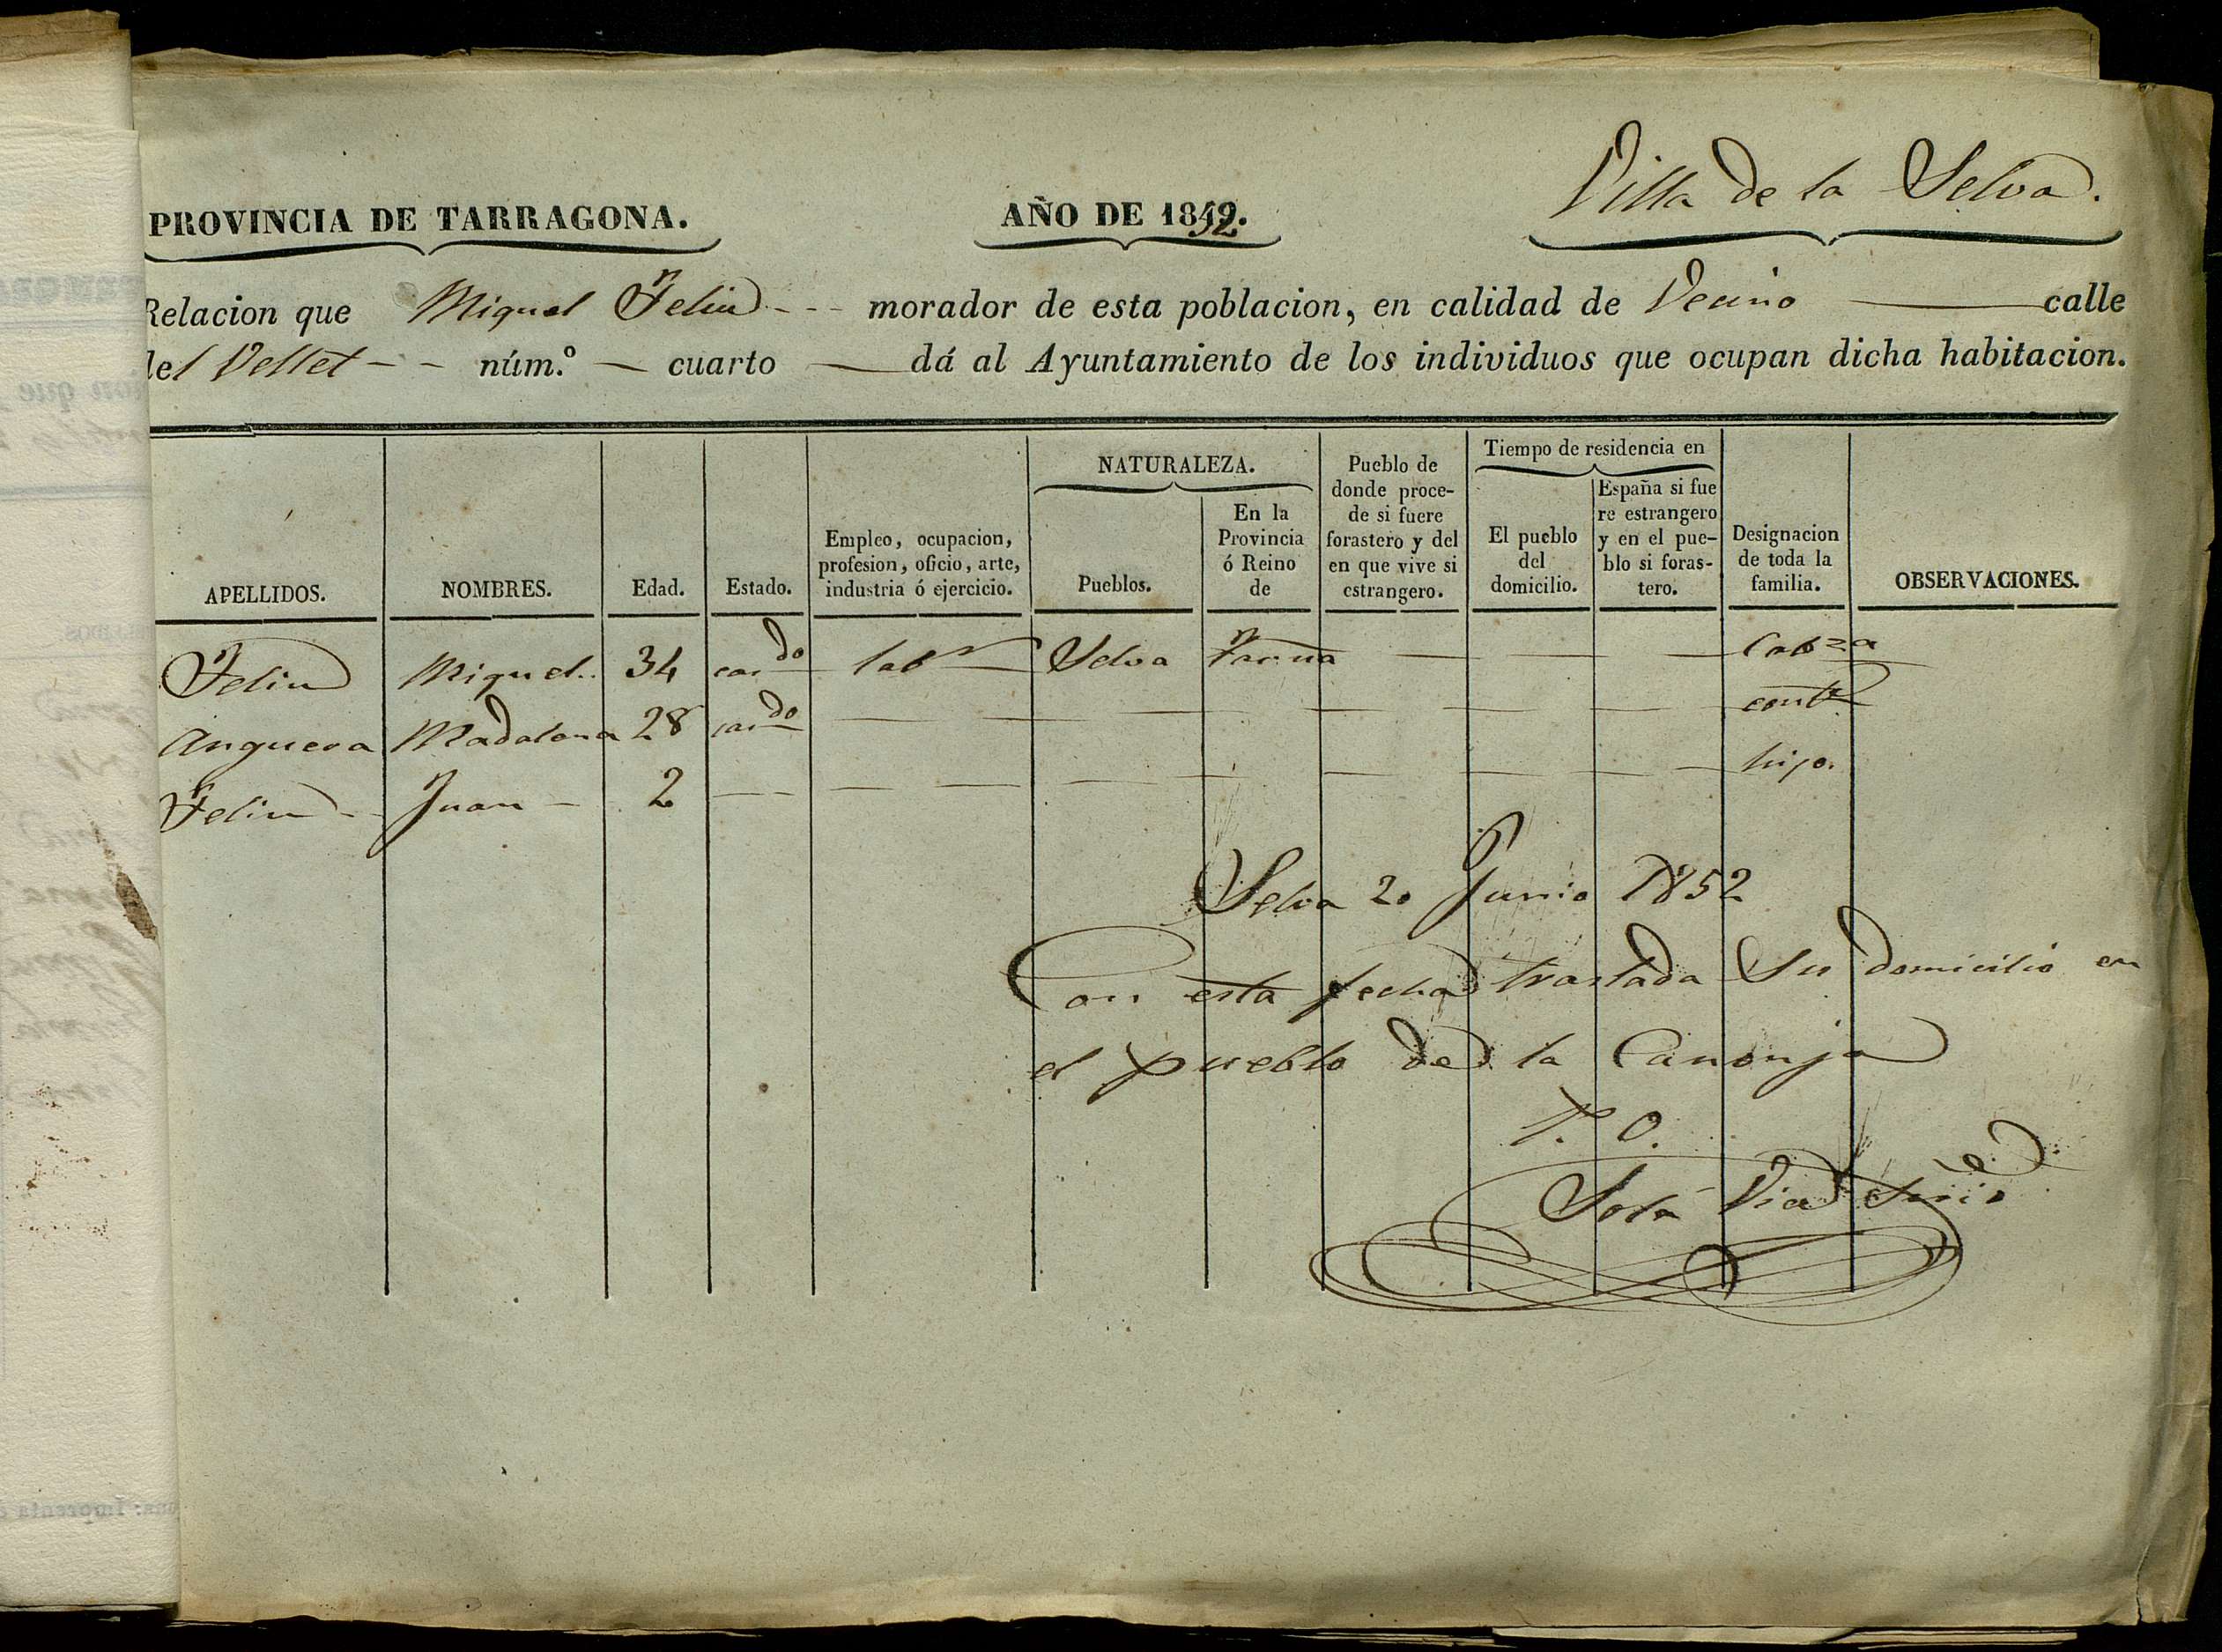 Villa de la Selva.
PROVINCIA DE TARRAGONA.
AÑO DE 1852.
Relacion que Miguel Feliu - - - morador de esta poblacion, en calidad de Vecino — calle
del Vellet - - núm.º — cuarto — dá al Ayuntamiento de los individuos que ocupan dicha habitacion.
APELLIDOS. NOMBRES. Edad. Estado. Empleo, ocupacion, profesion, oficio, arte, industria ó ejercicio. NATURALEZA. Pueblos. En la Provincia ó Reino de Pueblo de donde procede si fuere forastero y del en que vive si estrangero. Tiempo de residencia en El pueblo del domicilio. España si fuere estrangero y en el pueblo si forastero. Designacion de toda la familia. OBSERVACIONES.
Feliu Miguel 34 cas.do labr Selva Tarrna — — — — Cabza
Anguera Madalena 28 cas.do — — — — — — — — cont
Feliu - - Juan - 2 — — — — — — — — hijo.
Selva 20 Junio 1852
Con esta fecha traslada su domicilio en
el pueblo de la Canonja